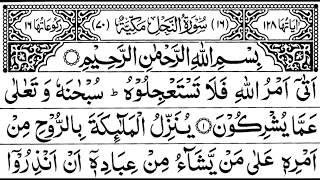 اٰيَاتُهَا ١٢٨ (١٦) سُوْرَةُ النَّحْلِ مَكِّيَّةٌ (٧٠) رُكُوْعَاتُهَا ١٦
بِسْمِ اللّٰهِ الرَّحْمٰنِ الرَّحِيْمِ
اَتٰۤى اَمْرُ اللّٰهِ فَلَا تَسْتَعْجِلُوْهُ ؕ سُبْحٰنَهٗ وَ تَعٰلٰى
عَمَّا يُشْرِكُوْنَ ۝١ يُنَزِّلُ الْمَلٰٓىِٕكَةَ بِالرُّوْحِ مِنْ
اَمْرِهٖ عَلٰى مَنْ يَّشَآءُ مِنْ عِبَادِهٖۤ اَنْ اَنْذِرُوْۤا